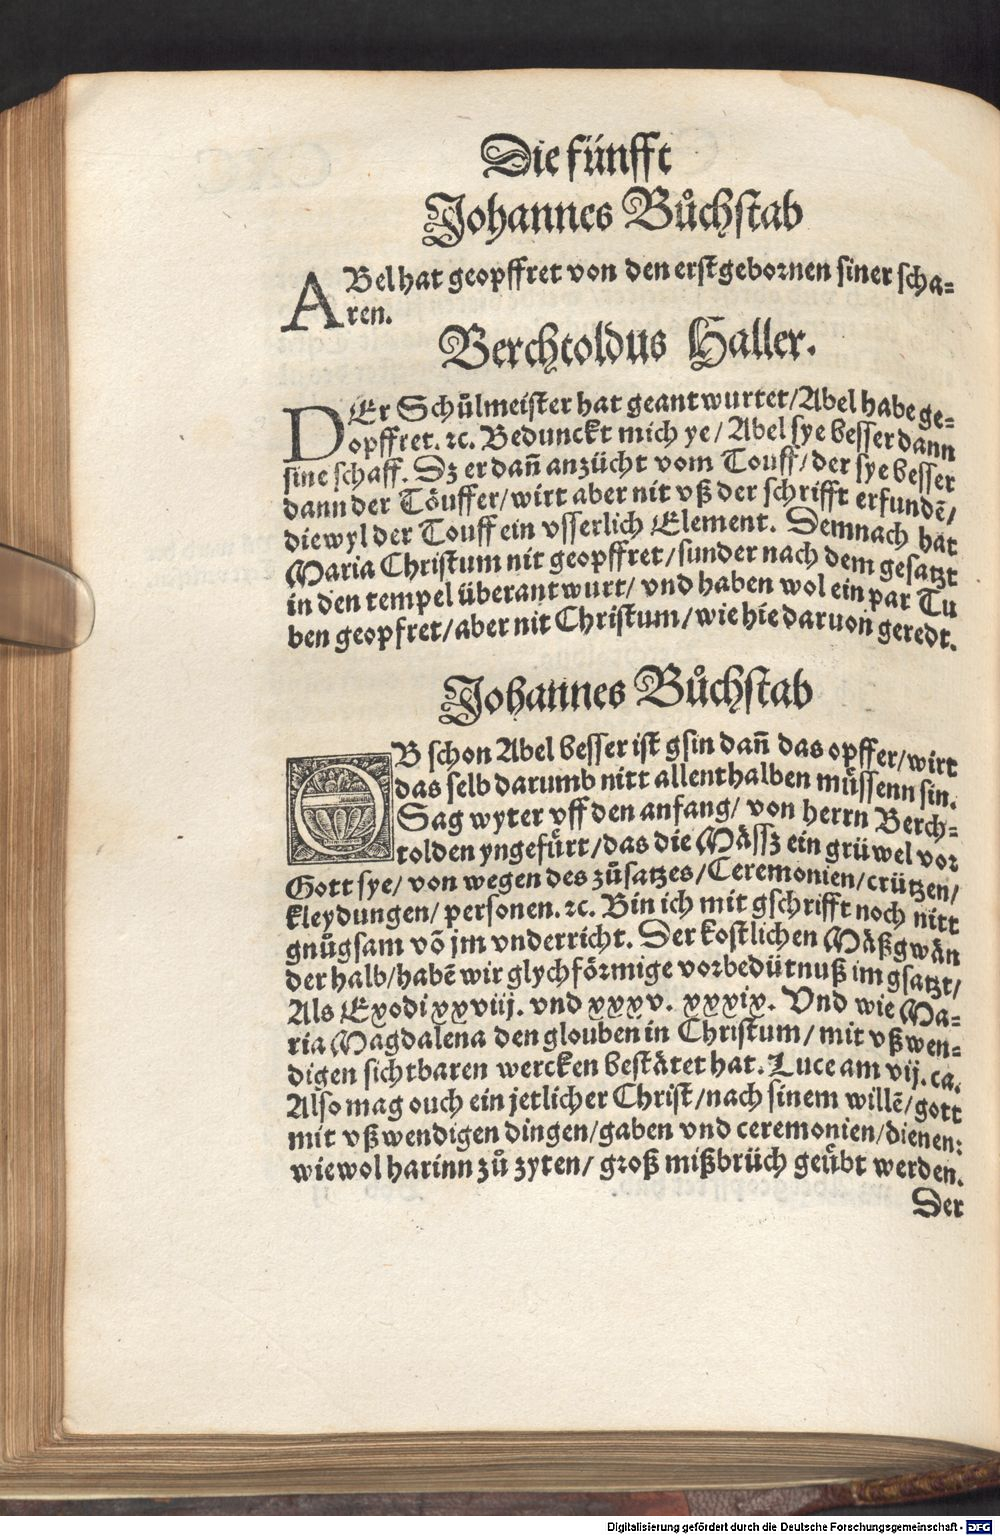 Die fünfft
Johannes Bůchstab
ABel hat geopffret von den erstgebornen siner scha⸗
ren.
Berchtoldus Haller.
DEr Schůlmeister hat geantwurtet/Abel habe ge⸗
opffret. ꝛc. Bedunckt mich ye/ Abel sye besser dann
sine schaff. Dz er dañ anzücht vom Touff/der sye besser
dann der Töuffer/wirt aber nit vß der schrifft erfundē/
diewyl der Touff ein vsserlich Element. Demnach hat
Maria Christum nit geopffret/sunder nach dem gesatzt
in den tempel überantwurt/ vnd haben wol ein par Tu
ben geopfret/aber nit Christum/wie hie daruon geredt.
Johannes Bůchstab
OB schon Abel besser ist gsin dañ das opffer/wirt
das selb darumb nitt allenthalben můssenn sin.
Sag wyter vff den anfang/ von herrn Berch⸗
tolden yngefürt/das die Mässz ein grüwel vor
Gott sye/ von wegen des zůsatzes/Ceremonien/crützen/
kleydungen/ personen. ꝛc. Bin ich mit gschrifft noch nitt
gnůgsam võ jm vnderricht. Der kostlichen Mäßgwän
der halb/habē wir glychförmige vorbedütnuß im gsatzt/
Als Exodi xxviij. vnd xxxv. xxxix. Vnd wie Ma⸗
ria Magdalena den glouben in Christum/ mit vßwen⸗
digen sichtbaren wercken bestätet hat. Luce am vij. ca.
Also mag ouch ein jetlicher Christ/nach sinem willē/gott
mit vßwendigen dingen/gaben vnd ceremonien/dienen:
wiewol harinn zů zyten/ groß mißbrüch geübt werden.
Der
Digitalisierung gefördert durch die Deutsche Forschungsgemeinschaft - DFG